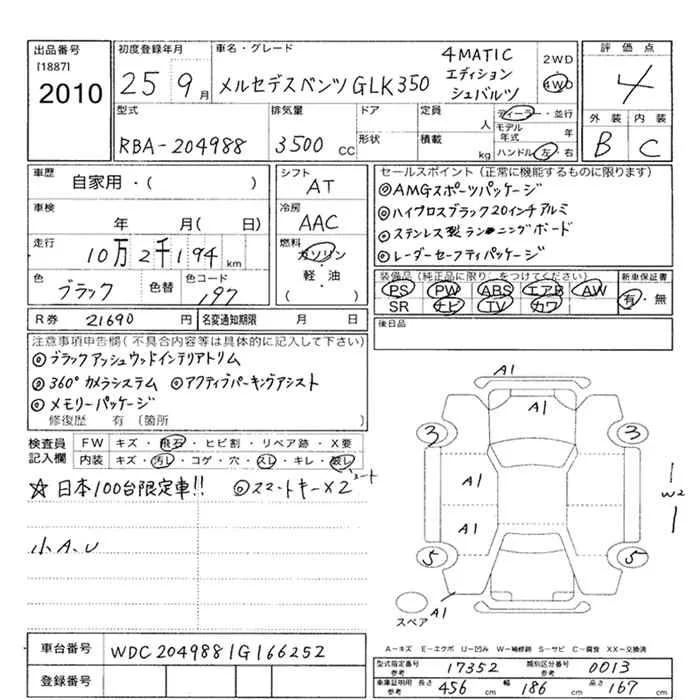 出品番号 初度登録年月 車名・グレード 評価点
[1887] 2010
25年 9月 メルセデスベンツ GLK350 4MATIC エディション シュバルツ
2WD
4WD
4
外装 内装
B C
型式 排気量 ドア 定員 人 ディーラー・並行
RBA-204988 3500 CC 形状 積載 kg モデル年式 年
ハンドル 左・右
車歴 自家用・( )
シフト AT
車検 年 月( 日)
冷房 AAC
走行 10万2千194 km
燃料 ガソリン・軽・油
( )
色 ブラック 色替 色コード 197
R券 21690 円 名変通知期限 月 日
セールスポイント(正常に機能するものに限ります)
◎AMGスポーツパッケージ
◎ハイグロスブラック20インチアルミ
◎ステンレス製ランニングボード
◎レーダーセーフティパッケージ
装備品(純正品に限り○をつけてください) 新車保証書
PS PW ABS エアB AW 有・無
SR ナビ TV カワ
後日品
注意事項申告欄(不具合内容等は具体的に記入して下さい)
◎ブラックアッシュウッドインテリアトリム
◎360°カメラシステム ◎アクティブパーキングアシスト
◎メモリーパッケージ
修復歴 有(箇所
検査員記入欄 FW キズ・飛石・ヒビ割・リペア跡・X要
内装 キズ・汚レ・コゲ・穴・スレ・キレ・破レ
シート
☆日本100台限定車!! ◎スマートキー×2
小A.U
A1
A1
3 3
A1
W2
A1
5 5
A1
スペア
A-キズ E-エクボ U-凹み W-補修跡 S-サビ C-腐食 XX-交換済
車台番号 WDC2049881G166252
登録番号
型式指定番号 参考 17352 類別区分番号 参考 0013
車庫証明用 参考 長さ 456 cm 幅 186 cm 高さ 167 cm